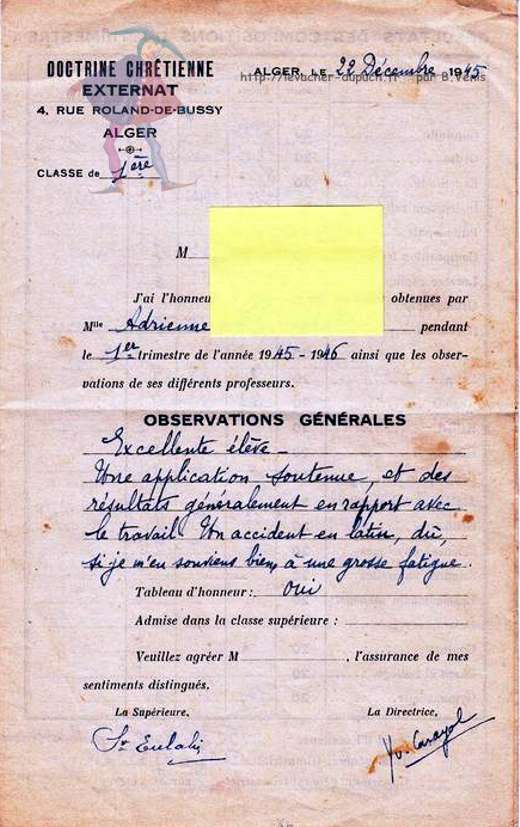 DOCTRINE CHRÉTIENNE
EXTERNAT
4, RUE ROLAND-DE-BUSSY
ALGER
CLASSE de 1ère
ALGER, LE 22 Décembre 1945
http://levacher-dupuch.fr par B.Venis
M
J'ai l'honneu obtenues par
Mlle Adrienne pendant
le 1er trimestre de l'année 1945 - 1946 ainsi que les obser-
vations de ses différents professeurs.
OBSERVATIONS GÉNÉRALES
Excellente élève -
Une application soutenue, et des
résultats généralement en rapport avec
le travail. Un accident en latin, dû,
si je m'en souviens bien, à une grosse fatigue.
Tableau d'honneur : oui
Admise dans la classe supérieure :
Veuillez agréer M , l'assurance de mes
sentiments distingués.
La Supérieure,
La Directrice,
Sr Eulalie
Yv. Carayol